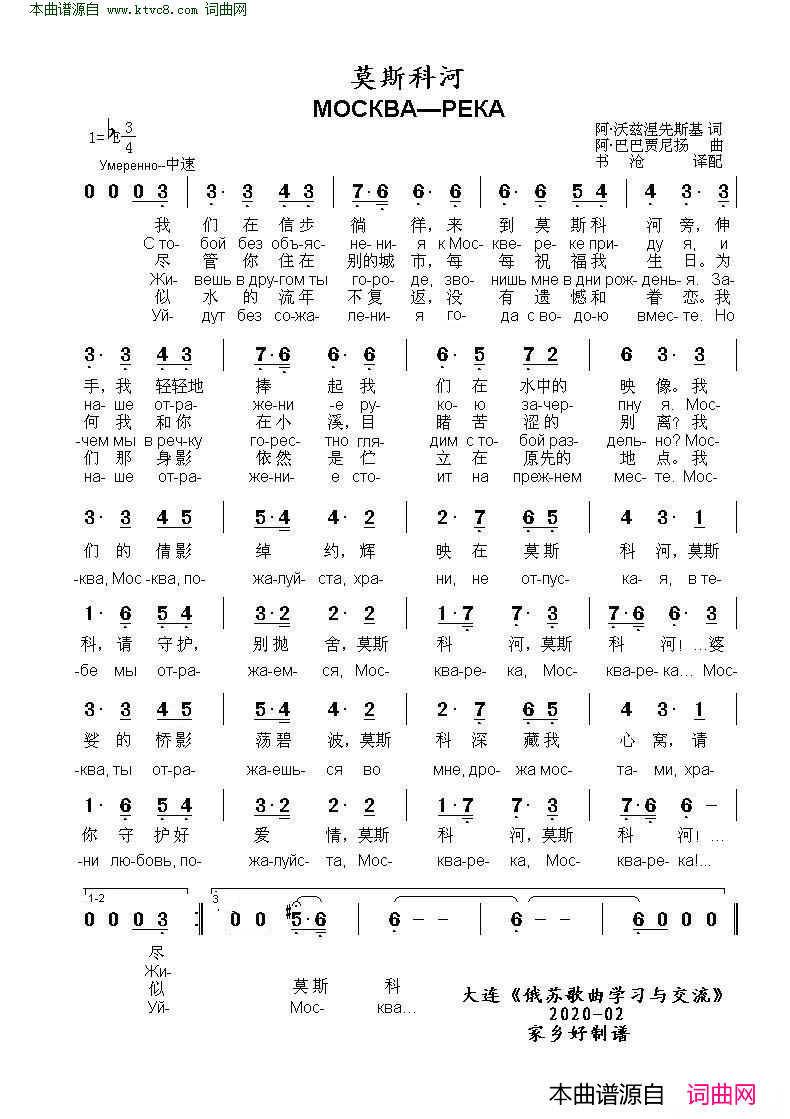 本曲谱源自 www.ktvc8.com 词曲网
莫斯科河
МОСКВА—РЕКА
1=♭E 3/4
阿·沃兹涅先斯基 词
阿·巴巴贾尼扬 曲
书 沧 译配
Умеренно--中速
0 0 0 3 | 3· 3 4 3 | 7·6 6·6 | 6·6 5 4 | 4 3·3
我 们 在 信步 徜 徉，来 到 莫 斯 科 河 旁，伸
С то- бой без объ-яс- не-ни- я к Мос- кве-ре- ке при- ду я, и
尽 管 你 住 在 别的城 市，每 每 祝 福 我 生 日。为
Жи- вешь в дру-гом ты го-ро- де, зво- нишь мне в дни рож- день-я. За-
似 水 的 流 年 不 复 返，没 有 遗 憾 和 眷 恋。我
Уй- дут без со-жа- ле-ни- я го- да с во-до-ю вмес-те. Но
3· 3 4 3 | 7·6 6·6 | 6·5 7 2 | 6 3·3
手，我 轻轻地 捧 起 我 们 在 水中的 映 像。我
на-ше от-ра- же-ни -е ру- ко-ю за-чер- пну я. Мос-
何 我 和 你 在 小 溪，目 睹 苦 涩 的 别 离？我
-чем мы в реч-ку го-рес- тно гля- дим с то- бой раз- дель-но? Мос-
们 那 身 影 依 然 是 伫 立 在 原先的 地 点。我
на-ше от-ра- же-ни- е сто- ит на преж-нем мес-те. Мос-
3· 3 4 5 | 5·4 4·2 | 2·7 6 5 | 4 3·1
们 的 倩 影 绰 约，辉 映 在 莫斯 科 河，莫斯
-ква, Мос -ква, по- жа-луй-ста, хра- ни, не от-пус- ка-я, в те-
1· 6 5 4 | 3·2 4·2 | 1·7 7·3 | 7·6 6·3
科，请 守护， 别 抛 舍，莫斯 科 河，莫斯 科 河！…婆
-бе мы от-ра- жа-ем- ся, Мос- ква-ре- ка, Мос- ква-ре-ка... Мос-
3· 3 4 5 | 5·4 4·2 | 2·7 6 5 | 4 3·1
娑 的 桥 影 荡 碧 波，莫斯 科 深 藏 我 心 窝，请
-ква, ты от-ра- жа-ешь- ся во мне, дро- жа мос- та-ми, хра-
1· 6 5 4 | 3·2 4·2 | 1·7 7·3 | 7·6 6 −
你 守 护 好 爱 情，莫斯 科 河，莫斯 科 河！…
-ни лю-бовь, по- жалуйс- та, Мос- ква-ре- ка, Мос- ква-ре- ка!...
1-2 3
0 0 0 3 :‖ 0 0 #5·6 | 6 − − | 6 − − | 6 0 0 0
尽
Жи-
似 莫 斯 科
Уй- Мос- ква...
大连《俄苏歌曲学习与交流》
2020-02
家乡好制谱
本曲谱源自 词曲网